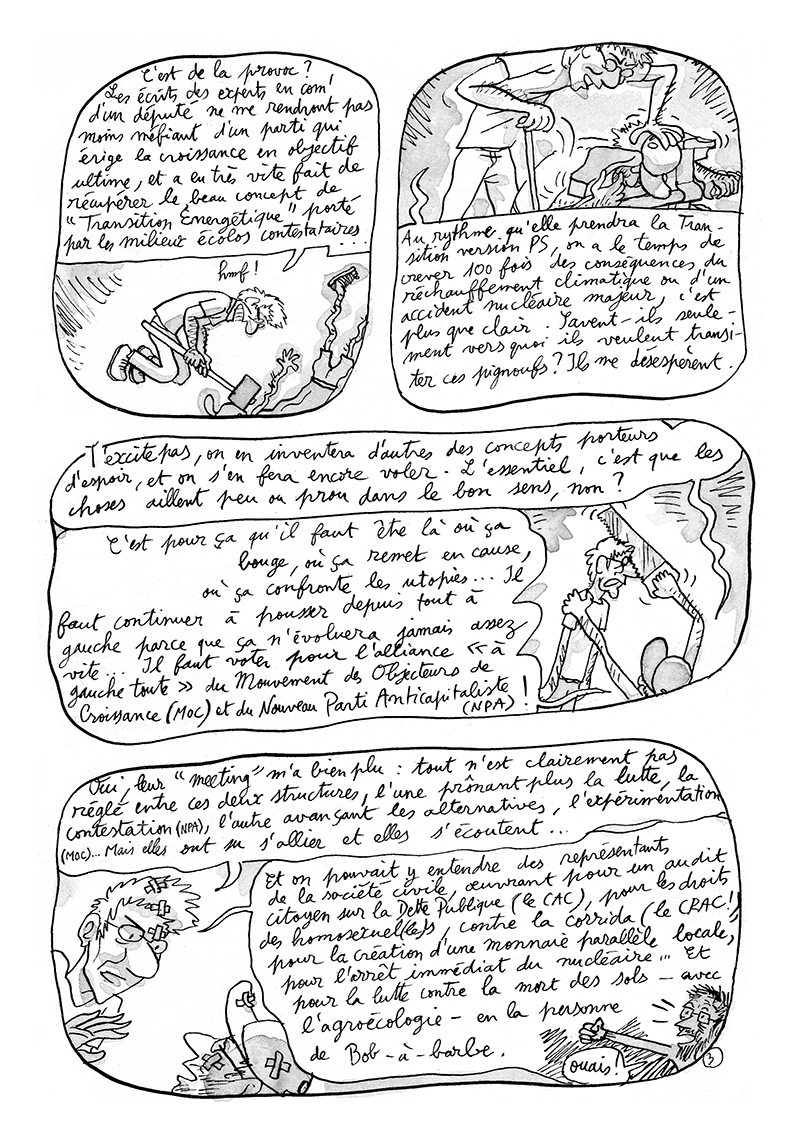 C'est de la provoc ?
Les écrits des experts en com'
d'un député ne me rendront pas
moins méfiant d'un parti qui
érige la croissance en objectif
ultime, et a eu très vite fait de
récupérer le beau concept de
"Transition Énergétique" porté
par les milieux écolos contestataires
...
hmf !
Au rythme qu'elle prendra la Tran-
sition version PS, on a le temps de
crever 100 fois des conséquences du
réchauffement climatique ou d'un
accident nucléaire majeur, c'est
plus que clair. Savent-ils seule-
ment vers quoi ils veulent transi-
ter ces pignoufs ? Ils me désespèrent.
T'excite pas, on en inventera d'autres des concepts porteurs
d'espoir, et on s'en fera encore voler. L'essentiel, c'est que les
choses aillent peu ou prou dans le bon sens, non ?
C'est pour ça qu'il faut être là où ça
bouge, où ça remet en cause,
où ça confronte les utopies... Il
faut continuer à pousser depuis tout à
gauche parce que ça n'évoluera jamais assez
vite... Il faut voter pour l'alliance « à
gauche toute » du Mouvement des Objecteurs de
Croissance (MOC) et du Nouveau Parti Anticapitaliste
(NPA) !
Oui, leur "meeting" m'a bien plu : tout n'est clairement pas
réglé entre ces deux structures, l'une prônant plus la lutte, la
contestation (NPA), l'autre avançant les alternatives, l'expérimentation
(MOC)... Mais elles ont su s'allier et elles s'écoutent...
Et on pouvait y entendre des représentants
de la société civile, œuvrant pour un audit
citoyen sur la Dette Publique (le CAC), pour les droits
des homosexuel(le)s, contre la corrida (le CRAC!),
pour la création d'une monnaie parallèle locale,
pour l'arrêt immédiat du nucléaire... Et
pour la lutte contre la mort des sols - avec
l'agroécologie - en la personne
de Bob-à-barbe.
Ouais !
3